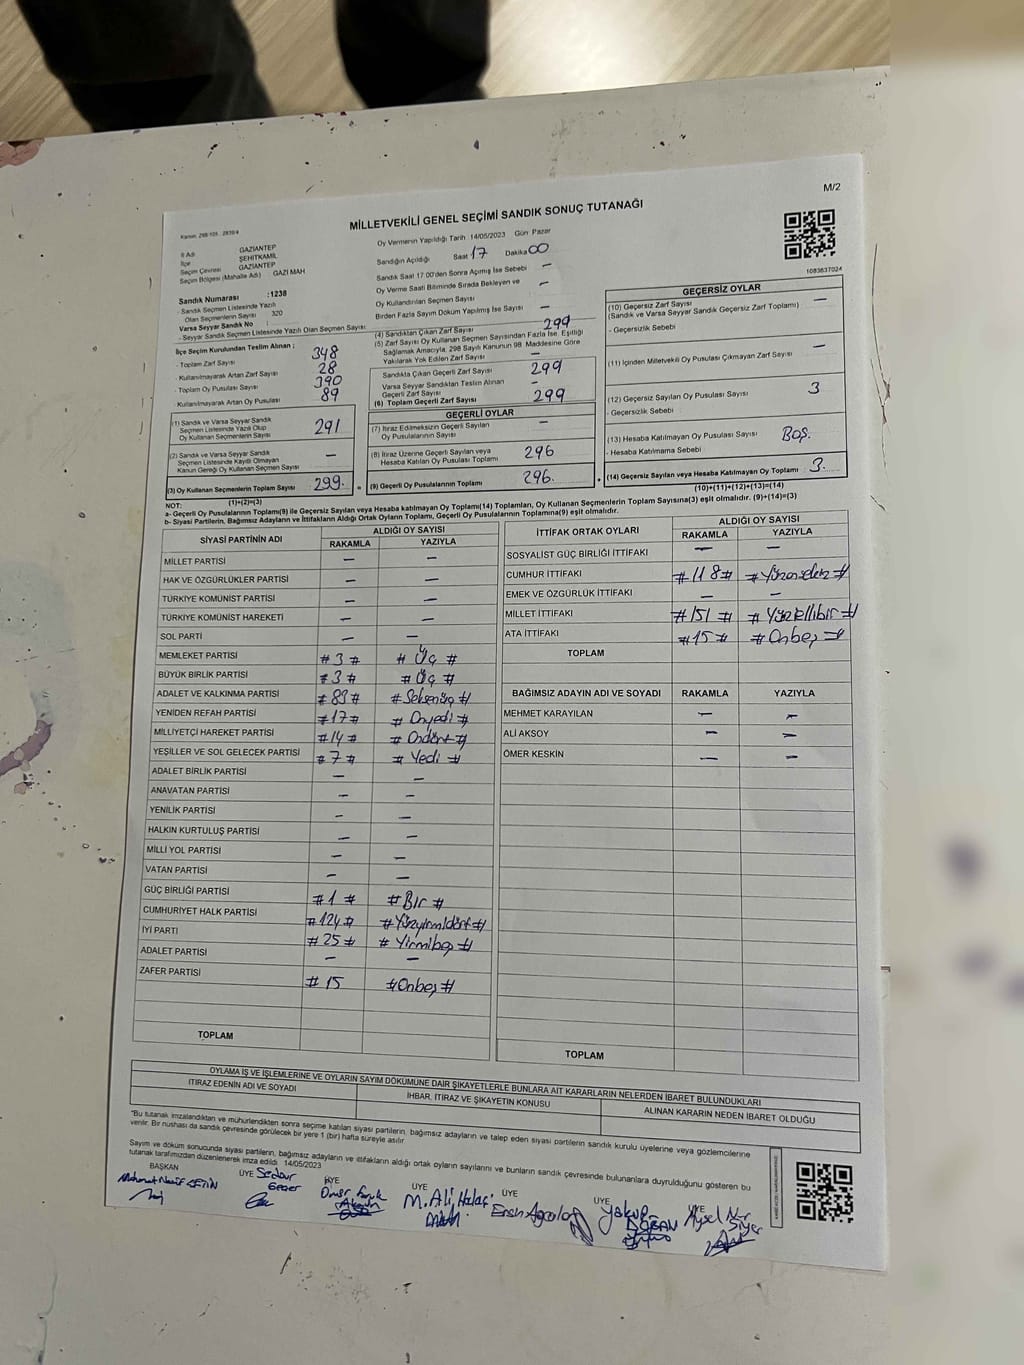 M/2
MİLLETVEKİLİ GENEL SEÇİMİ SANDIK SONUÇ TUTANAĞI
1083637024
İl Adı GAZİANTEP
İlçe ŞEHİTKAMİL
Seçim Çevresi GAZİANTEP
Seçim Bölgesi (Mahalle Adı) GAZİ MAH
Sandık Numarası :1238
- Sandık Seçmen Listesinde Yazılı
Olan Seçmenlerin Sayısı 320
Varsa Seyyar Sandık No :
- Seyyar Sandık Seçmen Listesinde Yazılı Olan Seçmen Sayısı
İlçe Seçim Kurulundan Teslim Alınan :
- Toplam Zarf Sayısı 348
- Kullanılmayarak Artan Zarf Sayısı 28
- Toplam Oy Pusulası Sayısı 390
- Kullanılmayarak Artan Oy Pusulası 89
(1) Sandık ve Varsa Seyyar Sandık
Seçmen Listesinde Yazılı Olup
Oy Kullanan Seçmenlerin Sayısı 291
(2) Sandık ve Varsa Seyyar Sandık
Seçmen Listesinde Kayıtlı Olmayan
Kanun Gereği Oy Kullanan Seçmen Sayısı —
(3) Oy Kullanan Seçmenlerin Toplam Sayısı 299
(1)+(2)=(3)
Oy Vermenin Yapıldığı Tarih 14/05/2023 Gün Pazar
Sandığın Açıldığı Saat 17 Dakika 00
Sandık Saat 17.00'den Sonra Açılmış İse Sebebi —
Oy Verme Saati Bitiminde Sırada Bekleyen ve
Oy Kullandırılan Seçmen Sayısı —
Birden Fazla Sayım Döküm Yapılmış İse Sayısı —
(4) Sandıktan Çıkan Zarf Sayısı 299
(5) Zarf Sayısı Oy Kullanan Seçmen Sayısından Fazla İse, Eşitliği
Sağlamak Amacıyla, 298 Sayılı Kanunun 98. Maddesine Göre
Yakılarak Yok Edilen Zarf Sayısı —
Sandıkta Çıkan Geçerli Zarf Sayısı 299
Varsa Seyyar Sandıktan Teslim Alınan
Geçerli Zarf Sayısı —
(6) Toplam Geçerli Zarf Sayısı 299
GEÇERLİ OYLAR
(7) İtiraz Edilmeksizin Geçerli Sayılan
Oy Pusulalarının Sayısı —
(8) İtiraz Üzerine Geçerli Sayılan veya
Hesaba Katılan Oy Pusulası Toplamı 296
(9) Geçerli Oy Pusulalarının Toplamı 296.
GEÇERSİZ OYLAR
(10) Geçersiz Zarf Sayısı —
(Sandık ve Varsa Seyyar Sandık Geçersiz Zarf Toplamı)
- Geçersizlik Sebebi
(11) İçinden Milletvekili Oy Pusulası Çıkmayan Zarf Sayısı —
(12) Geçersiz Sayılan Oy Pusulası Sayısı 3
- Geçersizlik Sebebi
(13) Hesaba Katılmayan Oy Pusulası Sayısı Boş.
- Hesaba Katılmama Sebebi
(14) Geçersiz Sayılan veya Hesaba Katılmayan Oy Toplamı 3.
(10)+(11)+(12)+(13)=(14)
NOT:
a- Geçerli Oy Pusulaları Toplamı(9) ile Geçersiz Sayılan veya Hesaba katılmayan Oy Toplamı(14) Toplamları, Oy Kullanan Seçmenlerin Toplam Sayısına(3) eşit olmalıdır. (9)+(14)=(3)
b- Siyasi Partilerin, Bağımsız Adayların ve İttifakların Aldığı Ortak Oyların Toplamı, Geçerli Oy Pusulalarının Toplamına(9) eşit olmalıdır.
SİYASİ PARTİNİN ADI ALDIĞI OY SAYISI
RAKAMLA YAZIYLA
MİLLET PARTİSİ — —
HAK VE ÖZGÜRLÜKLER PARTİSİ — —
TÜRKİYE KOMÜNİST PARTİSİ — —
TÜRKİYE KOMÜNİST HAREKETİ — —
SOL PARTİ — —
MEMLEKET PARTİSİ #3# #Üç#
BÜYÜK BİRLİK PARTİSİ #3# #Üç#
ADALET VE KALKINMA PARTİSİ #83# #Seksenüç#
YENİDEN REFAH PARTİSİ #17# #Onyedi#
MİLLİYETÇİ HAREKET PARTİSİ #14# #Ondört#
YEŞİLLER VE SOL GELECEK PARTİSİ #7# #Yedi#
ADALET BİRLİK PARTİSİ — —
ANAVATAN PARTİSİ — —
YENİLİK PARTİSİ — —
HALKIN KURTULUŞ PARTİSİ — —
MİLLİ YOL PARTİSİ — —
VATAN PARTİSİ — —
GÜÇ BİRLİĞİ PARTİSİ #1# #Bir#
CUMHURİYET HALK PARTİSİ #124# #Yüzyirmidört#
İYİ PARTİ #25# #Yirmibeş#
ADALET PARTİSİ — —
ZAFER PARTİSİ #15 #Onbeş#
TOPLAM
İTTİFAK ORTAK OYLARI ALDIĞI OY SAYISI
RAKAMLA YAZIYLA
SOSYALİST GÜÇ BİRLİĞİ İTTİFAKI — —
CUMHUR İTTİFAKI #118# #Yüzonsekiz#
EMEK VE ÖZGÜRLÜK İTTİFAKI — —
MİLLET İTTİFAKI #151# #Yüzellibir#
ATA İTTİFAKI #15# #Onbeş#
TOPLAM
BAĞIMSIZ ADAYIN ADI VE SOYADI RAKAMLA YAZIYLA
MEHMET KARAYILAN — —
ALİ AKSOY — —
ÖMER KESKİN — —
TOPLAM
OYLAMA İŞ VE İŞLEMLERİNE VE OYLARIN SAYIM DÖKÜMÜNE DAİR ŞİKAYETLERLE BUNLARA AİT KARARLARIN NELERDEN İBARET BULUNDUKLARI
İTİRAZ EDENİN ADI VE SOYADI İHBAR, İTİRAZ VE ŞİKAYETİN KONUSU ALINAN KARARIN NEDEN İBARET OLDUĞU
*Bu tutanak imzalandıktan ve mühürlendikten sonra seçime katılan siyasi partilerin, bağımsız adayların ve talep eden siyasi partilerin sandık kurulu üyelerine veya gözlemcilerine
verilir. Bir nüshası da sandık çevresinde görülecek bir yere 1 (bir) hafta süreyle asılır.
Sayım ve döküm sonucunda siyasi partilerin, bağımsız adayların ve ittifakların aldığı ortak oyların sayılarını ve bunların sandık çevresinde bulunanlara duyrulduğunu gösteren bu
tutanak tarafımızdan düzenlenerek imza edildi. 14/05/2023
BAŞKAN ÜYE ÜYE ÜYE ÜYE ÜYE ÜYE
Mehmet Nazif ÇETİN Serdar Ömer Faruk M. Ali Yakup DOĞAN Aysel Nur